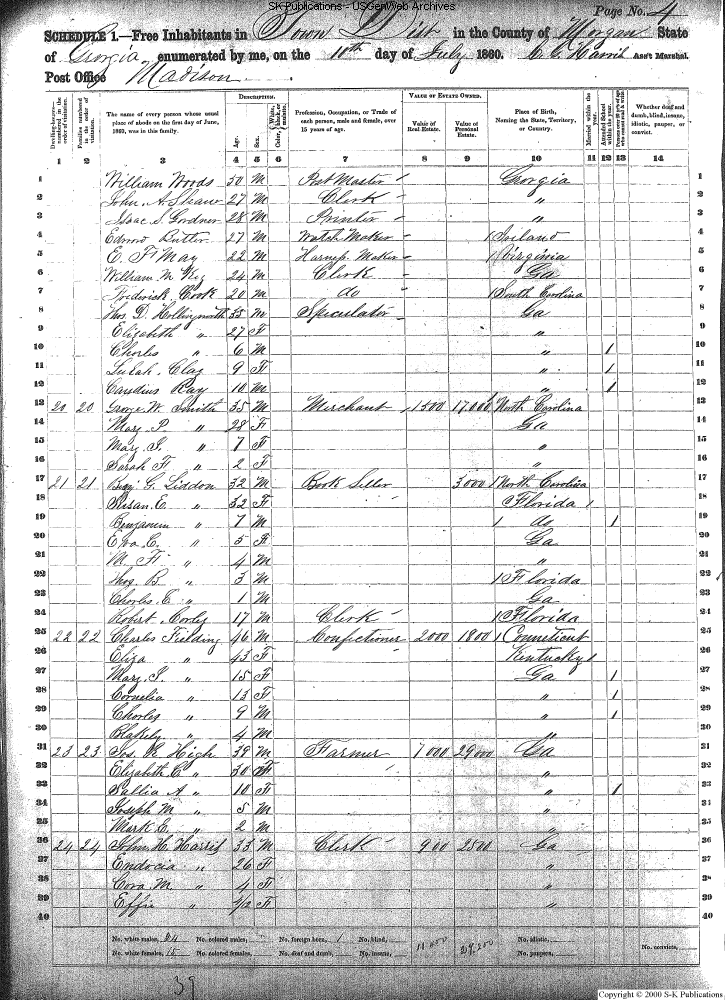 SK Publications - USGenWeb Archives
Page No. 4
SCHEDULE 1.—Free Inhabitants in Town Dist in the County of Morgan State
of Georgia enumerated by me, on the 10th day of July 1860. Ass't Marshal.
Post Office Madison
Dwelling-houses—numbered in the order of visitation.
Families numbered in the order of visitation.
The name of every person whose usual place of abode on the first day of June, 1860, was in this family.
DESCRIPTION.
Age.
Sex.
Color, White, black, or mulatto.
Profession, Occupation, or Trade of each person, male and female, over 15 years of age.
VALUE OF ESTATE OWNED.
Value of Real Estate.
Value of Personal Estate.
Place of Birth, Naming the State, Territory, or Country.
Married within the year.
Attended School within the year.
Whether deaf and dumb, blind, insane, idiotic, pauper, or convict.
1 2 3 4 5 6 7 8 9 10 11 12 13 14
1 William Woods 50 M Post Master Georgia 1
2 John A Shaw 27 M Clerk " 2
3 Isaac S. Gordner 28 M Printer " 3
4 Edward Butler 27 M Watch Maker 1 Ireland 4
5 E. F May 22 M Harness Maker 1 Virginia 5
6 William M 24 M Clerk Ga 6
7 Frederick Cook 20 M do 1 South Carolina 7
8 D. Hollingworth 35 M Speculator Ga 8
9 Elizabeth " 27 F " 9
10 Charles " 6 M " 1 10
11 Lulah Clay 9 F " 1 11
12 Ray 10 M " 1 12
13 20 20 George W. Smith 35 M Merchant 1500 17,000 North Carolina 13
14 Mary P. " 28 F Ga 14
15 Mary " 7 F " 15
16 Sarah F " 2 F " 16
17 21 21 Benj G. Liddon 32 M Book Seller 3000 1 North Carolina 17
18 Susan E. " 32 F Florida 1 18
19 Benjamin " 7 M 1 do 1 19
20 Eva C. " 5 F Ga 20
21 M F. " 4 M " 21
22 Thos B. " 3 M 1 Florida 22
23 Charles C " 1 M Ga 23
24 Robert Corley 17 M Clerk 1 Florida 24
25 22 22 Charles Fielding 46 M Confectioner 2000 1800 1 Connecticut 25
26 Eliza " 43 F Kentucky 1 26
27 Mary " 15 F Ga 1 27
28 Cornelia " 13 F " 1 28
29 Charles " 9 M " 1 29
30 Blakely " 4 M " 30
31 23 23 Jos. R High 39 M Farmer 7000 29000 Ga 31
32 Elizabeth C " 30 F " 32
33 Sallie A " 10 F " 1 33
34 Joseph M " 5 M " 34
35 Mark E. " 2 M " 35
36 24 24 John H. Harris 33 M Clerk 900 2500 Ga 36
37 Eudocia " 26 F " 37
38 Cora M. " 4 F " 38
39 Effie " F " 39
40 40
No. white males, 24 No. colored males, No. foreign born, 1 No. blind, No. idiotic, No. convicts,
No. white females, 15 No. colored females, No. deaf and dumb, No. insane, No. paupers,
39
Copyright © 2000 S-K Publications